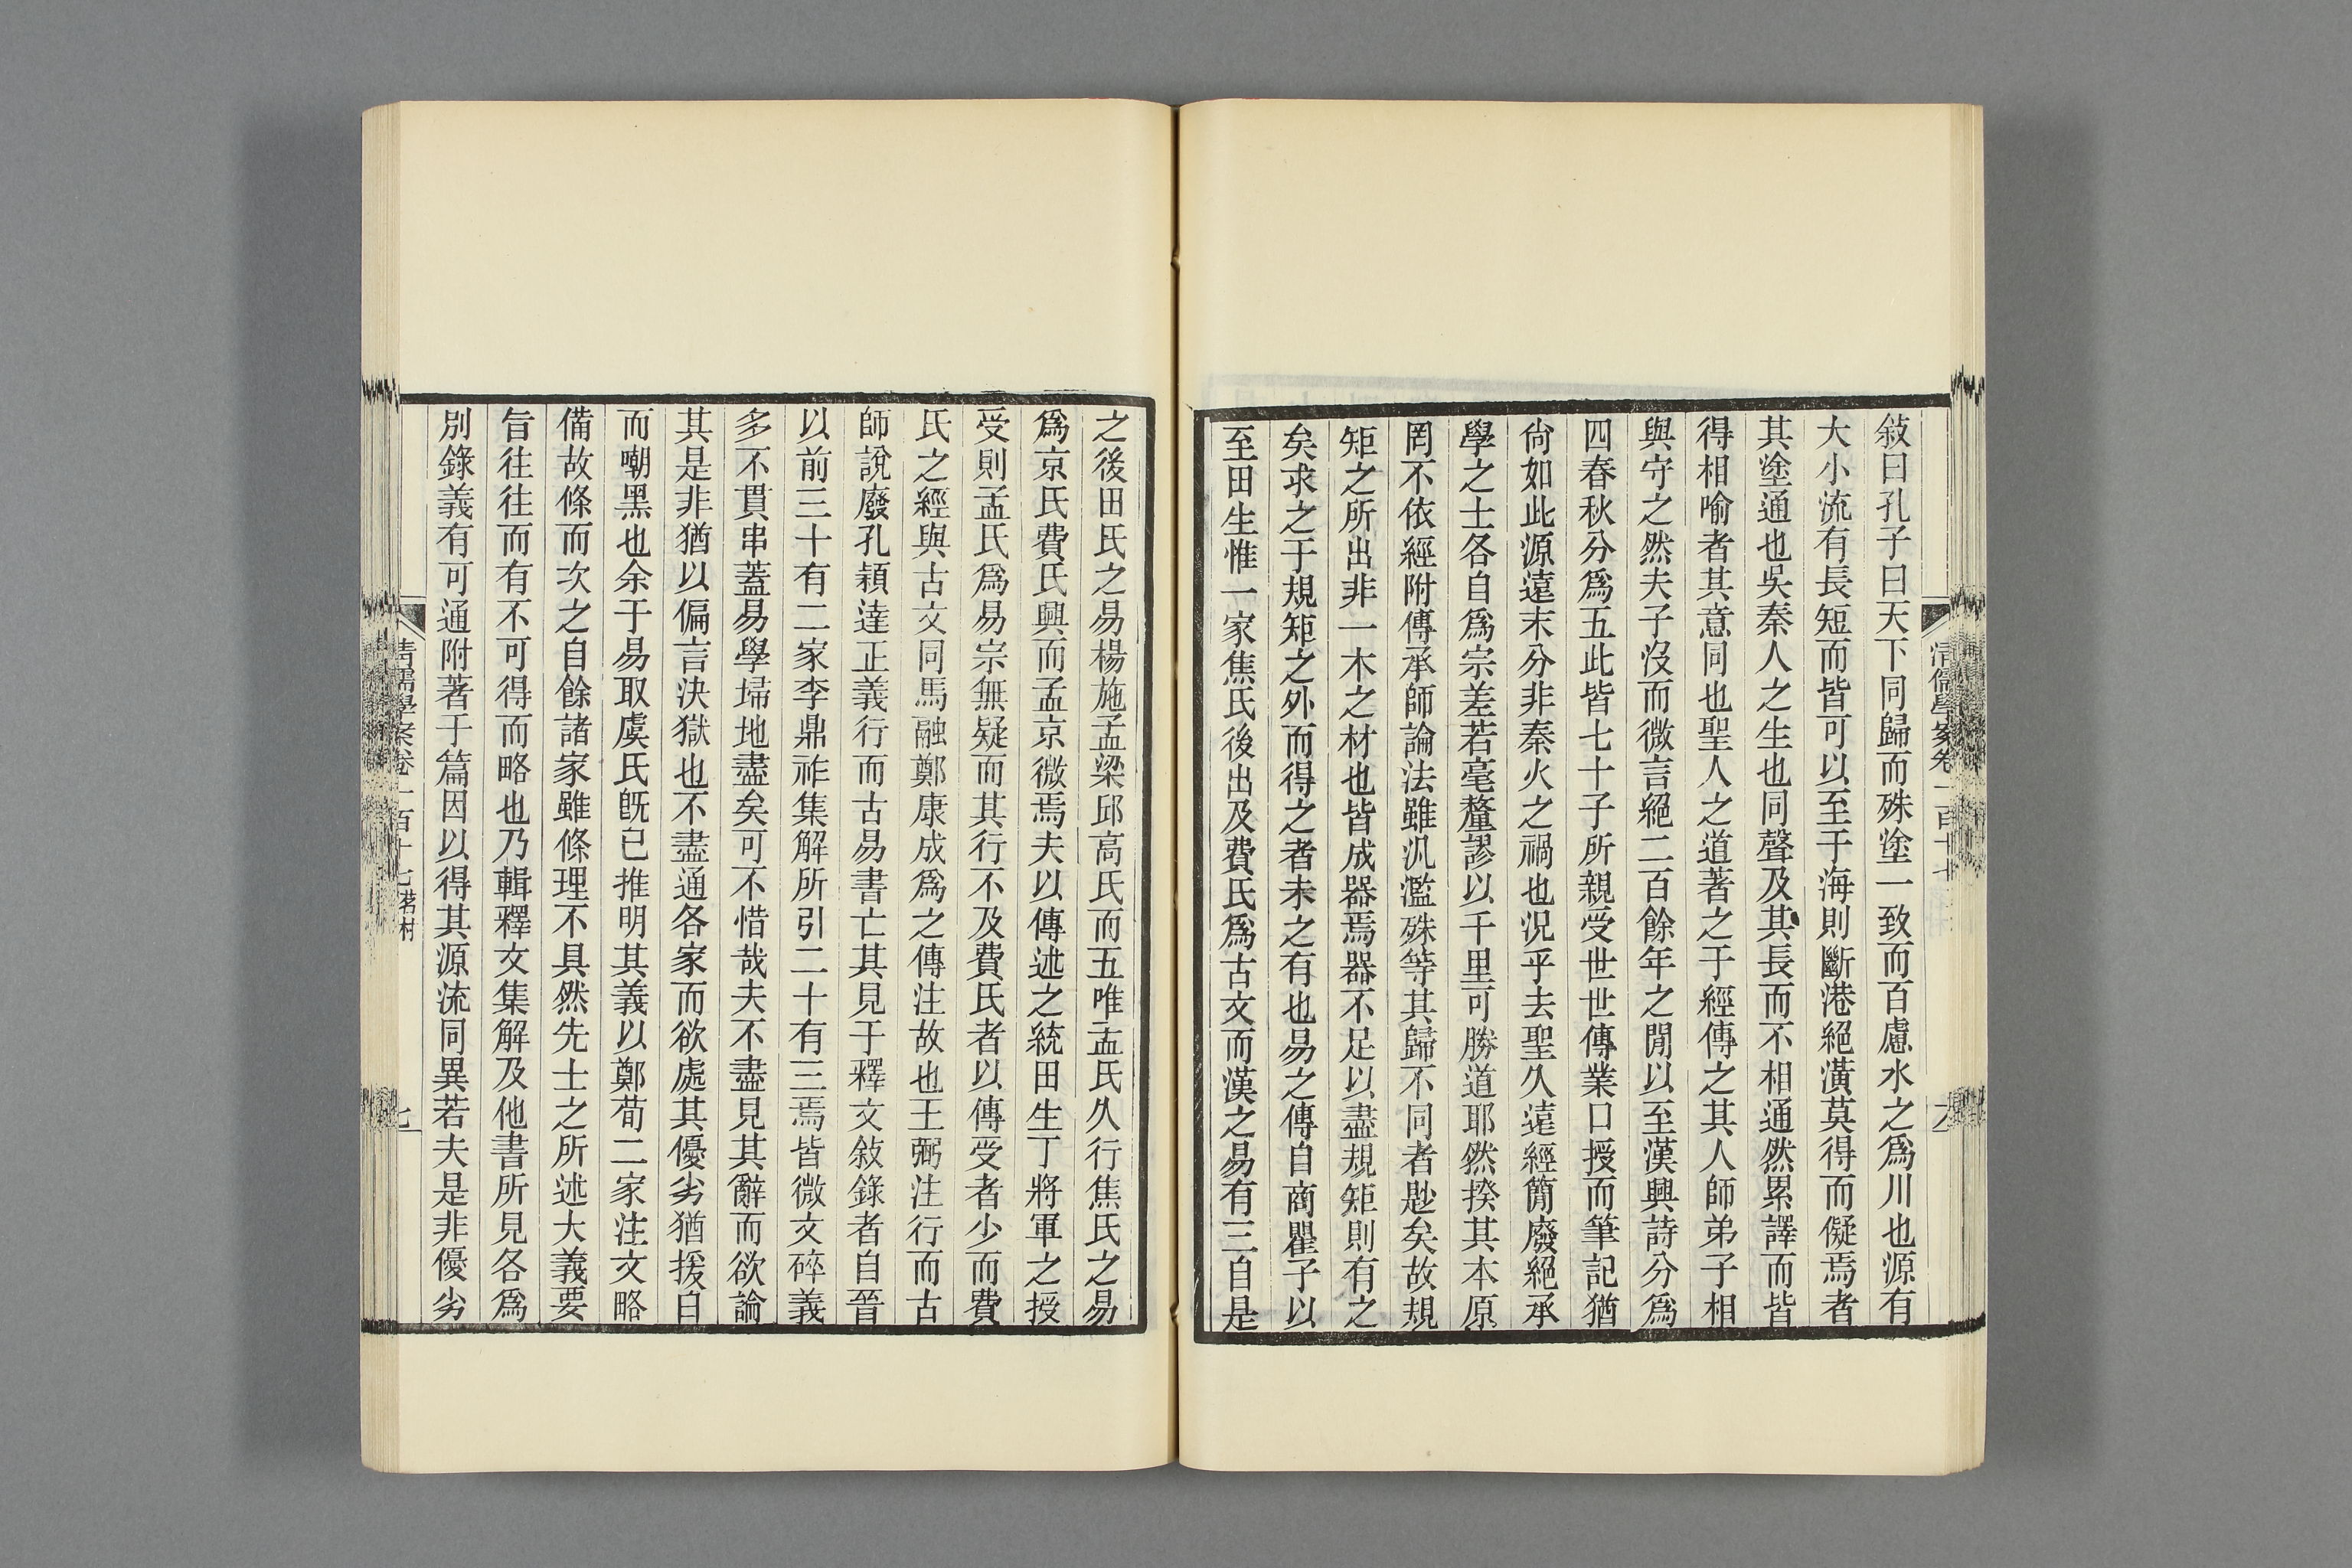 敍曰孔子曰天下同歸而殊塗一致而百慮水之爲川也源有
大小流有長短而皆可以至于海則斷港絕潢莫得而儗焉者
其塗通也吳秦人之生也同聲及其長而不相通然累譯而皆
得相喻者其意同也聖人之道著之于經傳之其人師弟子相
與守之然夫子沒而微言絕二百餘年之閒以至漢興詩分爲
四春秋分爲五此皆七十子所親受世世傳業口授而筆記猶
尙如此源遠末分非秦火之禍也況乎去聖久遠經簡廢絕承
學之士各自爲宗差若毫釐謬以千里可勝道耶然揆其本原
罔不依經附傳承師論法雖汎濫殊等其歸不同者尟矣故規
矩之所出非一木之材也皆成器焉器不足以盡規矩則有之
矣求之于規矩之外而得之者未之有也易之傳自商瞿子以
至田生惟一家焦氏後出及費氏爲古文而漢之易有三自是
之後田氏之易楊施孟梁邱高氏而五唯孟氏久行焦氏之易
爲京氏費氏興而孟京微焉夫以傳述之統田生丁將軍之授
受則孟氏爲易宗無疑而其行不及費氏者以傳受者少而費
氏之經與古文同馬融鄭康成爲之傳注故也王弼注行而古
師說廢孔穎達正義行而古易書亡其見于釋文敘錄者自晉
以前三十有二家李鼎祚集解所引二十有三焉皆微文碎義
多不貫串蓋易學埽地盡矣可不惜哉夫不盡見其辭而欲論
其是非猶以偏言決獄也不盡通各家而欲處其優劣猶援白
而嘲黑也余于易取虞氏旣已推明其義以鄭荀二家注文略
備故條而次之自餘諸家雖條理不具然先士之所述大義要
旨往往而有不可得而略也乃輯釋文集解及他書所見各爲
別錄義有可通附著于篇因以得其源流同異若夫是非優劣
清儒學案卷一百十七 茗柯
七